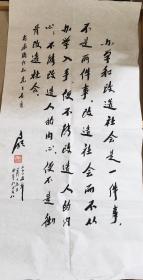 办学和改造社会是一件事，
不是两件事。改造社会而不从
办学入手，便不能改造人的内
心；不能改造人的内心，便不是彻
骨改造社会。